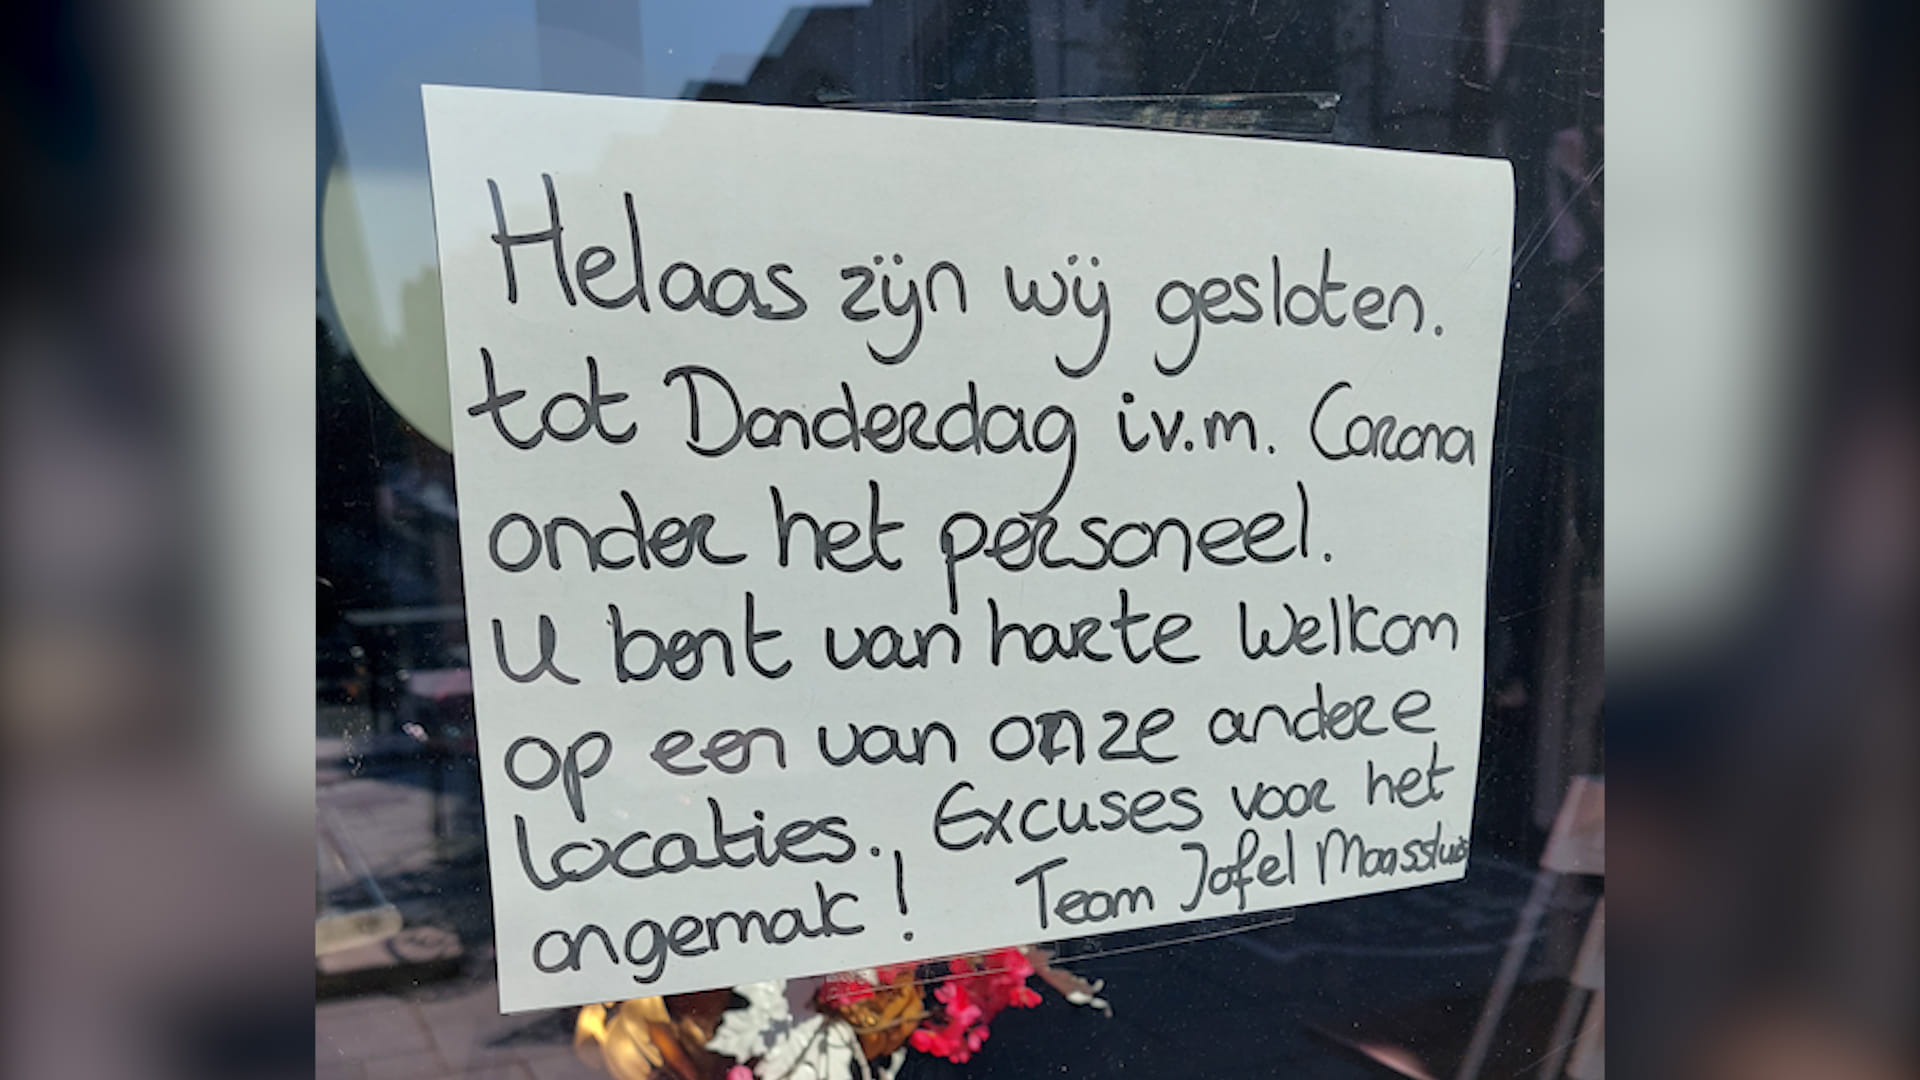 Helaas zijn wij gesloten.
tot Donderdag i.v.m. Corona
onder het personeel.
U bent van harte welkom
op een van onze andere
locaties. Excuses voor het
ongemak! Team Jafel Maassluis